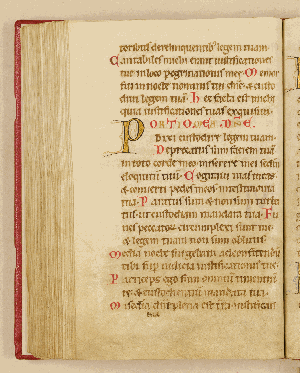 toribus derelinquentib; legem tuam.
Cantabiles michi erant iustificationes
tue in loco peregrinationis mee. Memor
fui in nocte nominis tui dñe: & custo
diui legem tuã. Hec facta est michi
quia iustificationes tuas exquisiui.
PORTIO MEA DÑE.
Dixi custodire legem tuam.
Deprecatus sum faciem tuã
in toto corde meo miserere mei scdm
eloquiũ tuũ. Cogitaui uias meas
& conuerti pedes meos in testimonia
tua. Paratus sum & non sum turba
tus ut custodiam mandata tua. Fu
nes peccatorũ circumplexi sunt me
& legem tuam non sum oblitus.
Media nocte surgebam ad confitendũ
tibi sup iudicia iustificationis tue.
Particeps ego sum omniũ timentiũ
te & custodientiũ mandata tua.
Misedia dñi plena est tra iustificati